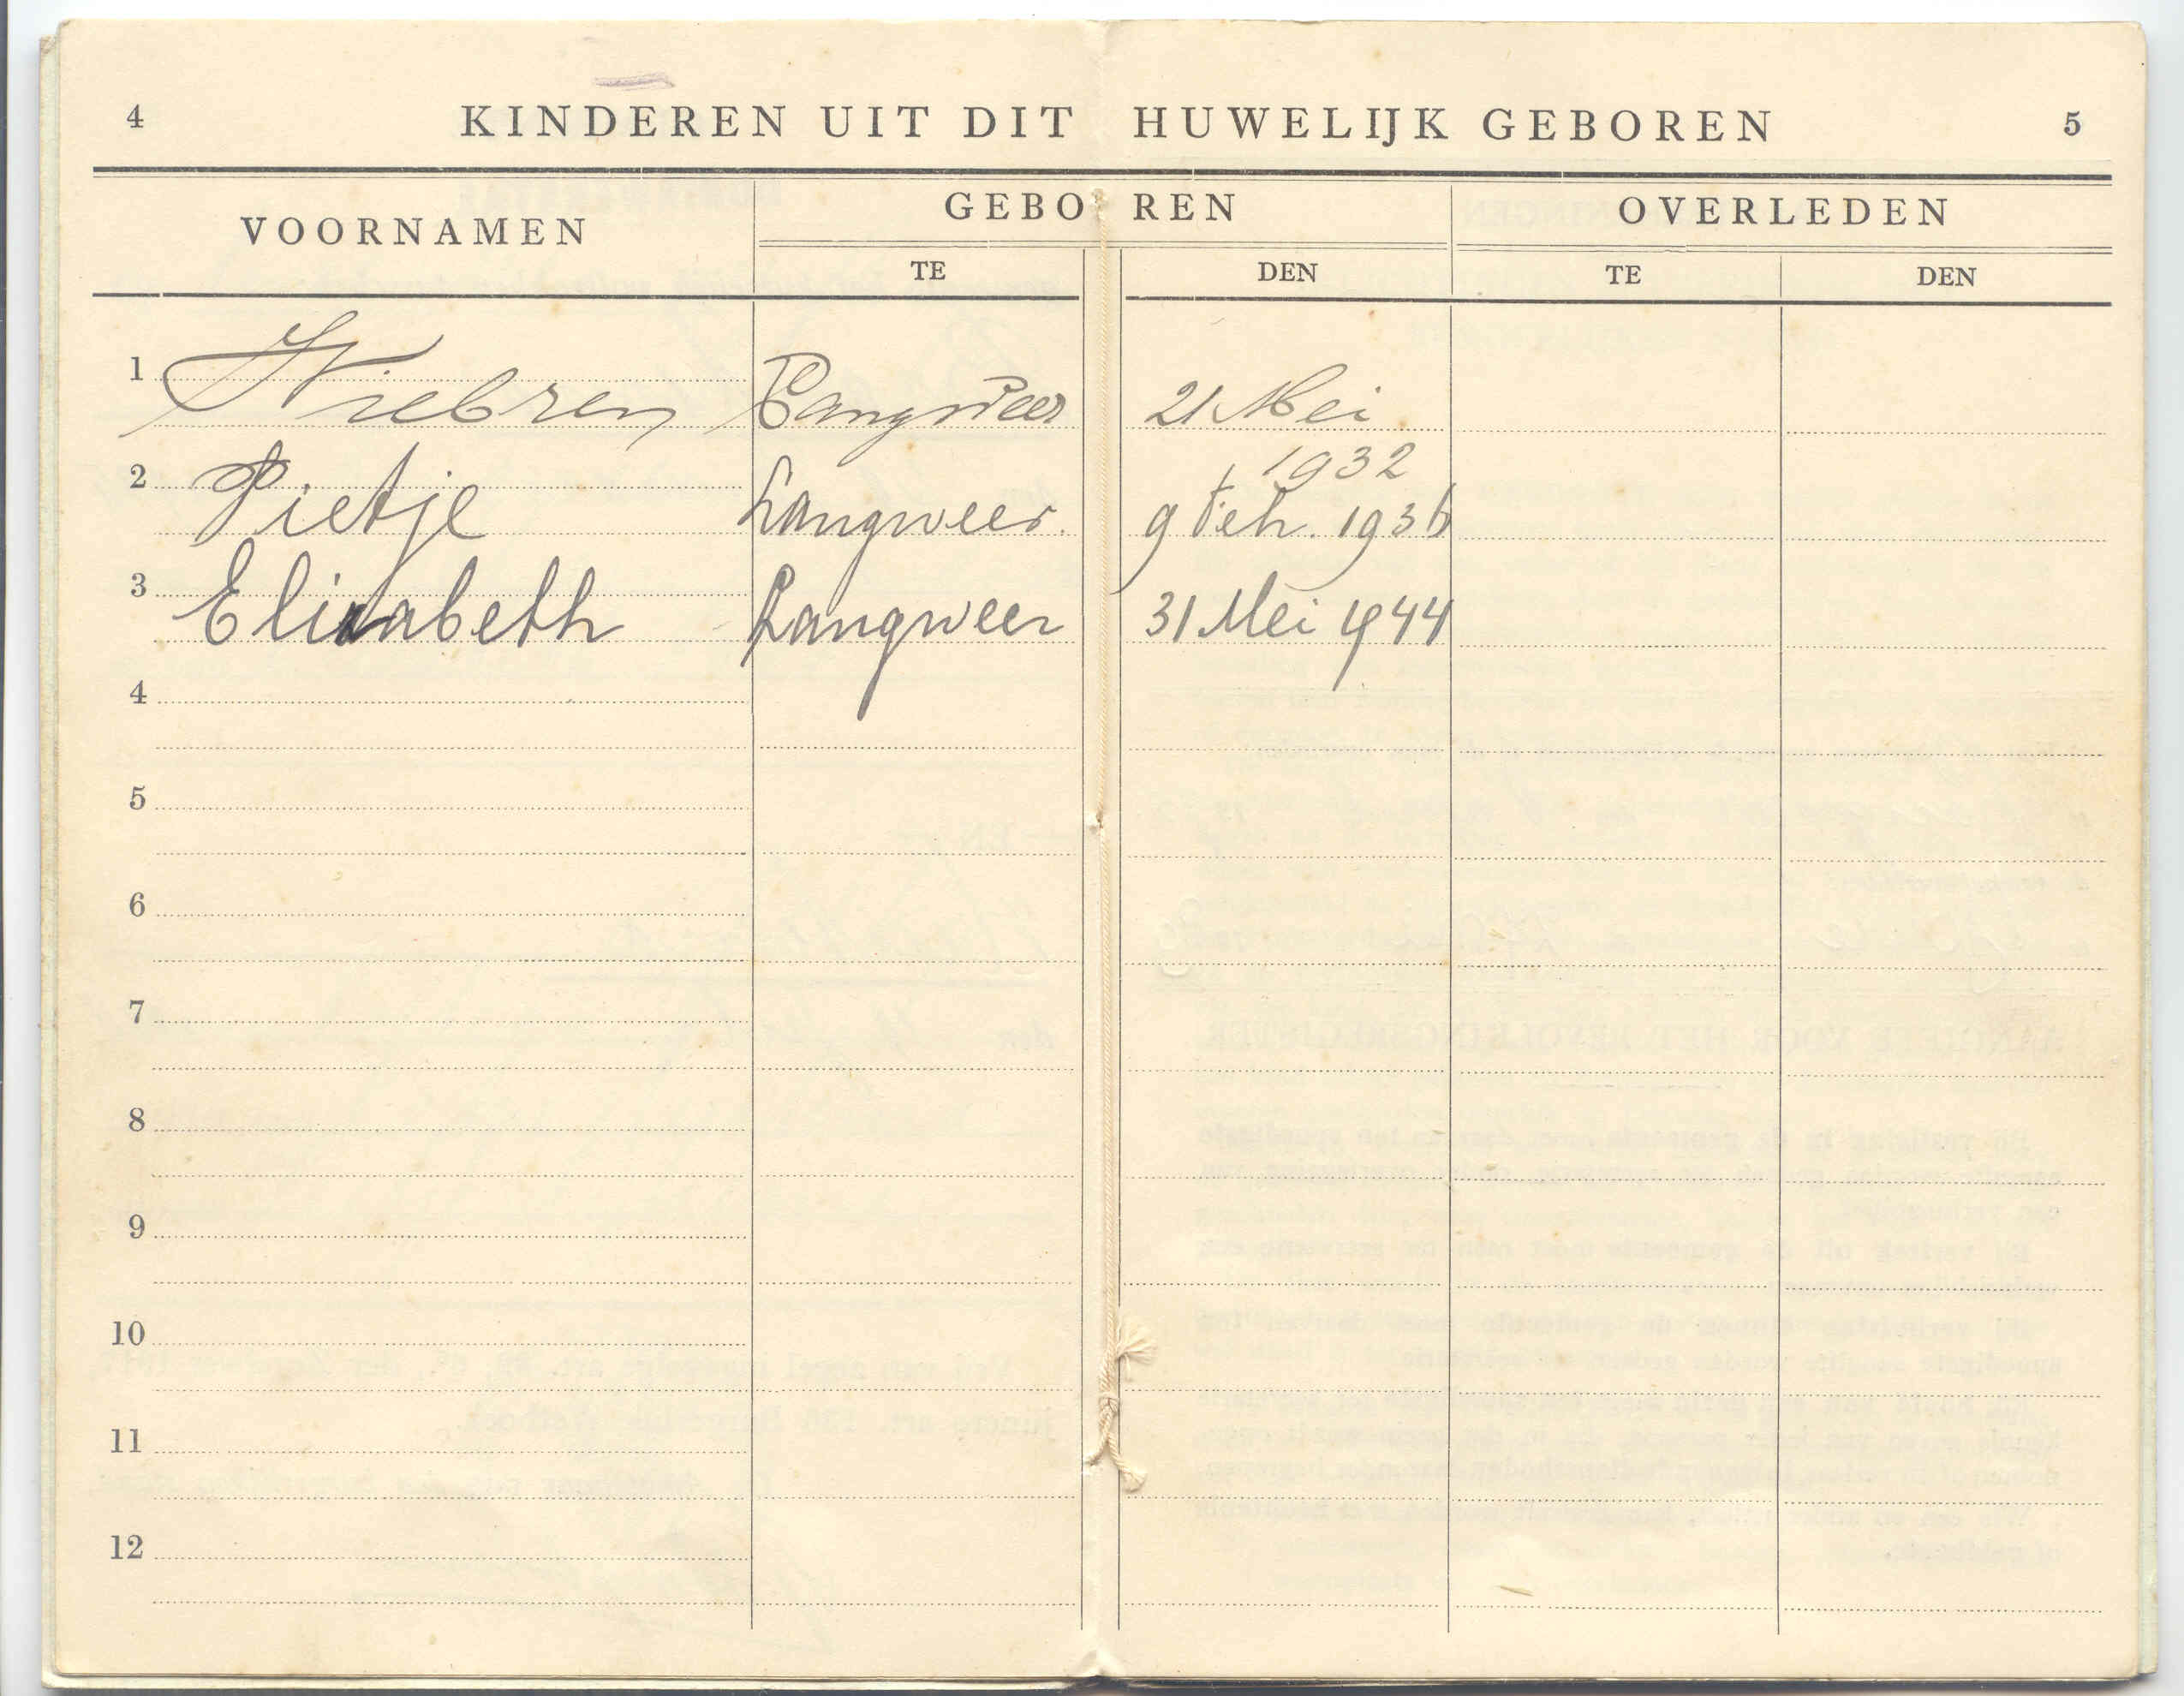 4 KINDEREN UIT DIT HUWELIJK GEBOREN 5
VOORNAMEN GEBOREN OVERLEDEN
TE DEN TE DEN
1 Wiebren Langweer 21 Mei
1932
2 Pietje Langweer. 9 Feb. 1936
3 Elizabeth Langweer 31 Mei 1944
4
5
6
7
8
9
10
11
12